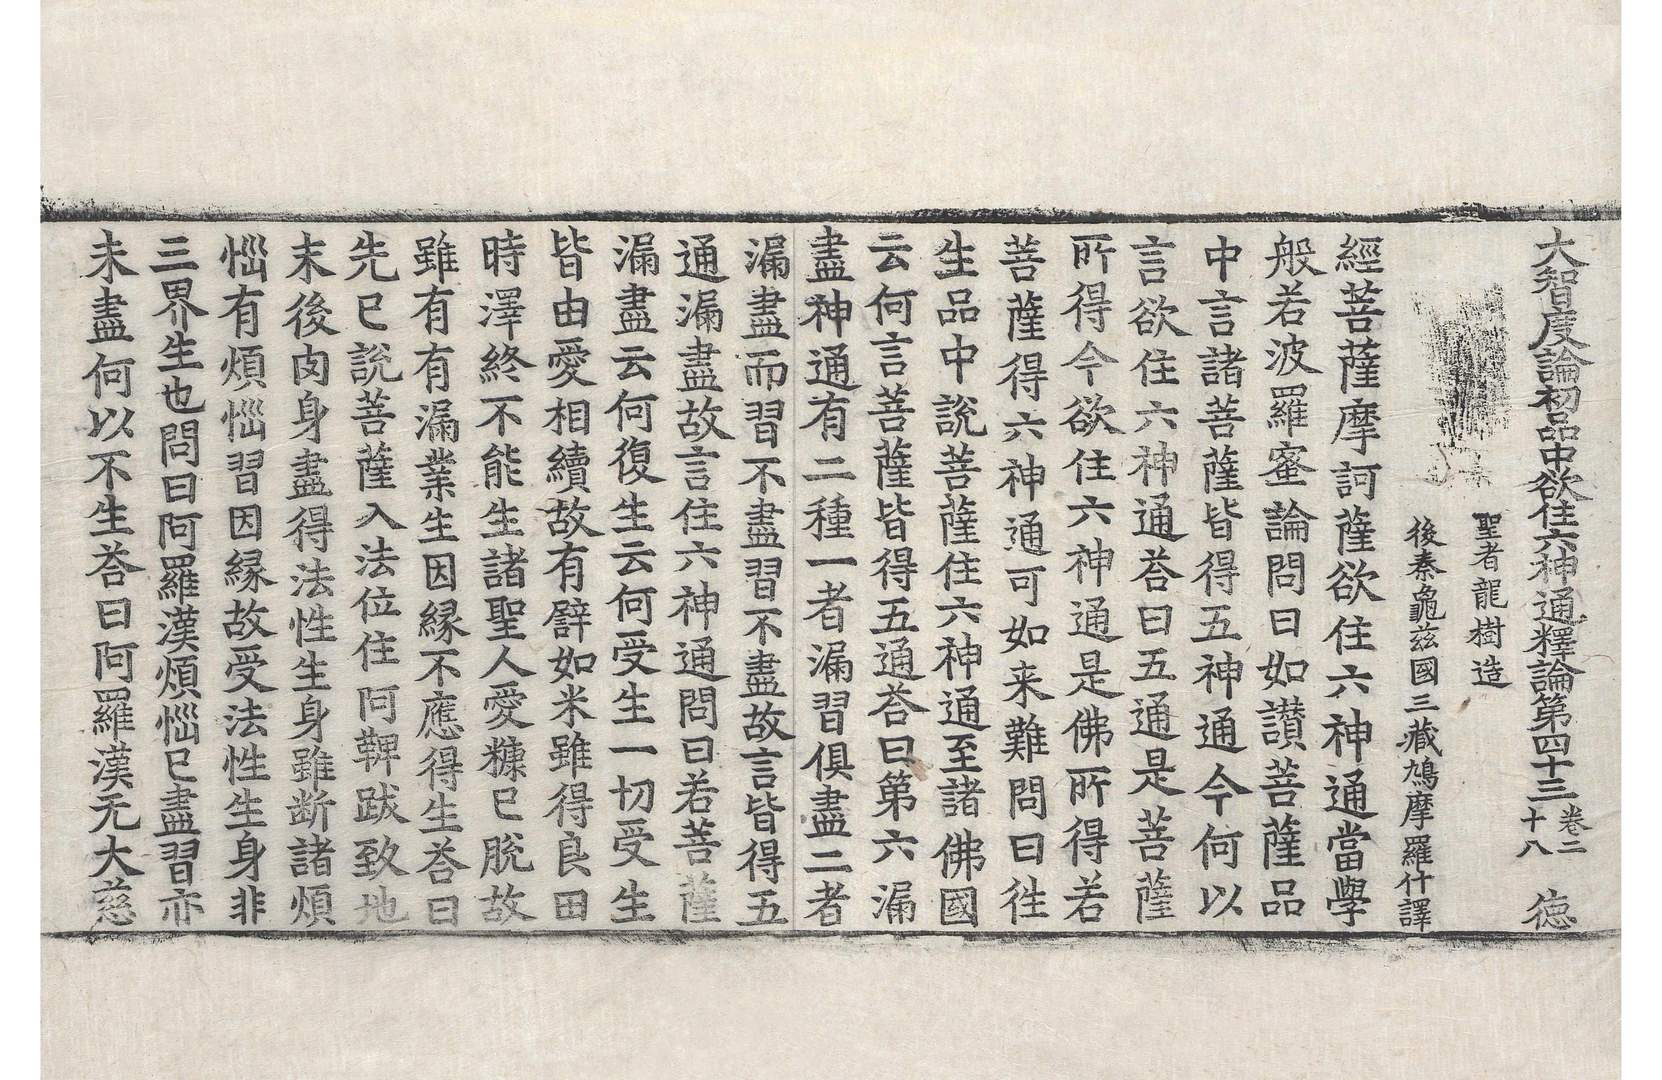 大智度論初品中欲住六神通釋論第四十三 卷二十八 德
聖者龍樹造
後秦龜茲國三藏鳩摩羅什譯
經菩薩摩訶薩欲住六神通當學
般若波羅蜜論問曰如讃菩薩品
中言諸菩薩皆得五神通今何以
言欲住六神通荅曰五通是菩薩
所得今欲住六神通是佛所得若
菩薩得六神通可如来難問曰徃
生品中說菩薩住六神通至諸佛國
云何言菩薩皆得五通荅曰第六漏
盡神通有二種一者漏習俱盡二者
漏盡而習不盡習不盡故言皆得五
通漏盡故言住六神通問曰若菩薩
漏盡云何復生云何受生一切受生
皆由愛相續故有譬如米雖得良田
時澤終不能生諸聖人愛糠已脫故
雖有有漏業生因緣不應得生荅曰
先已說菩薩入法位住阿鞞跋致地
末後肉身盡得法性生身雖断諸煩
惱有煩惱習因緣故受法性生身非
三界生也問曰阿羅漢煩惱已盡習亦
未盡何以不生荅曰阿羅漢无大慈